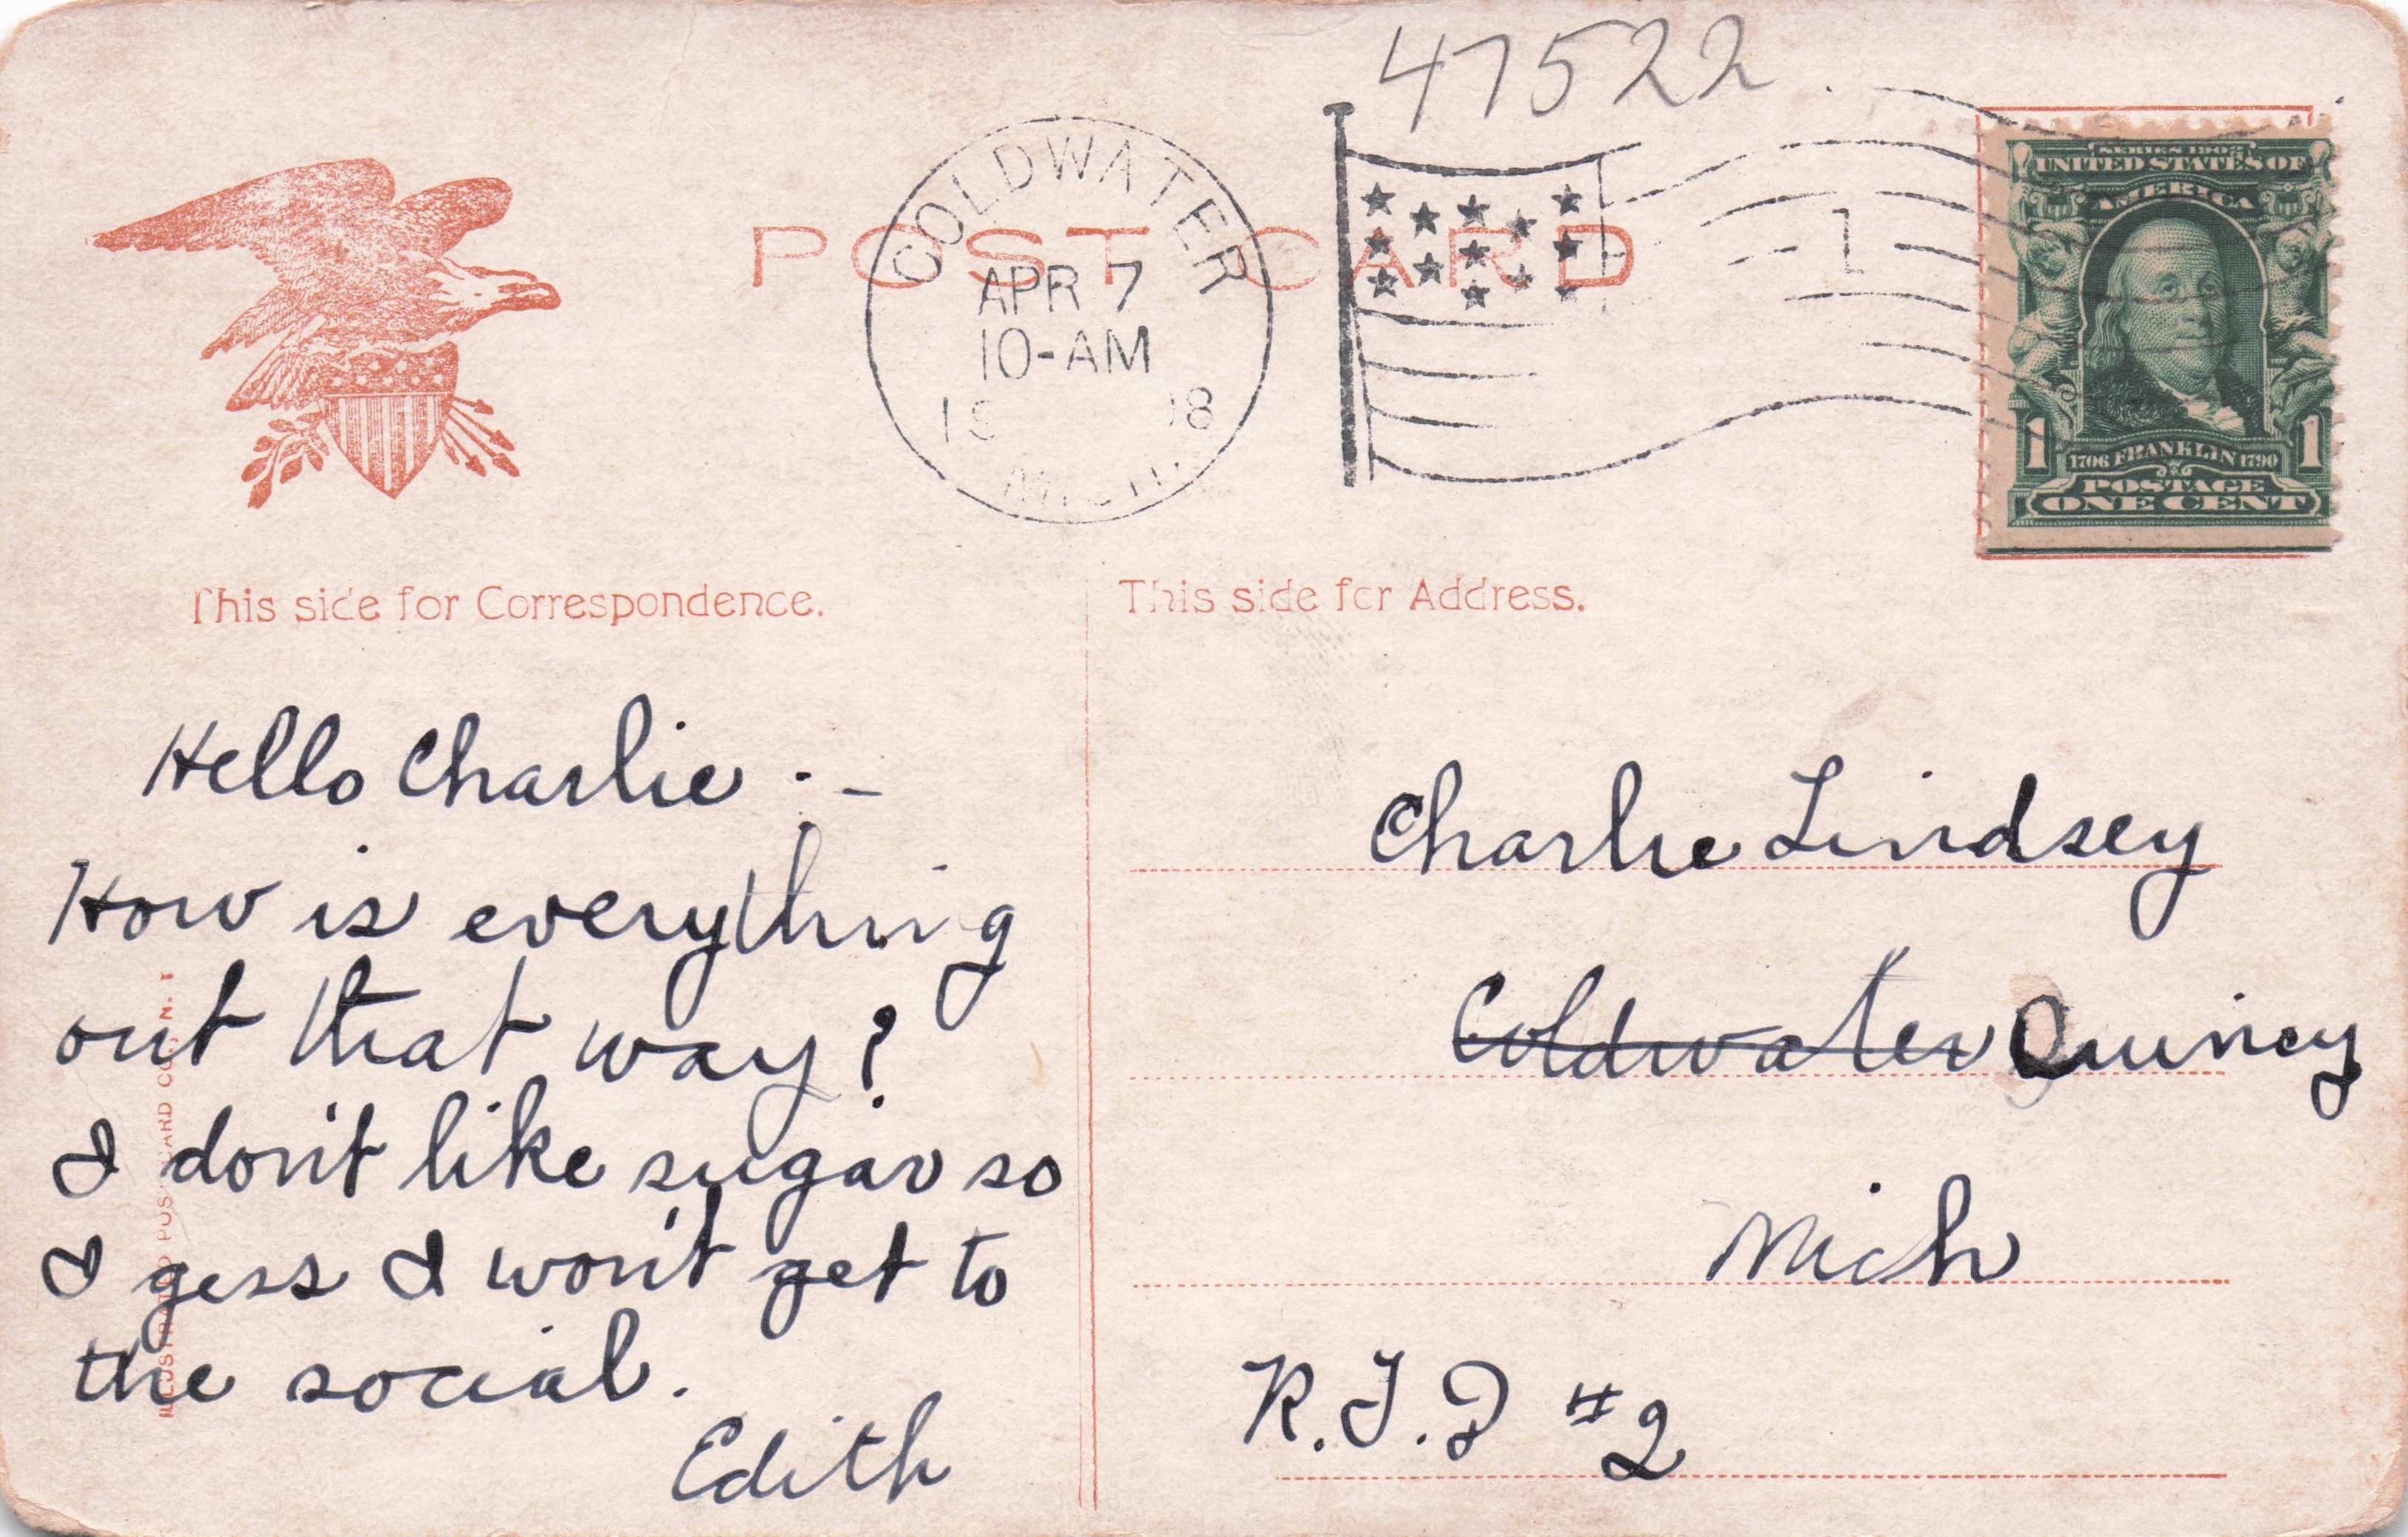 47522
POST CARD
COLDWATER
APR 7
10-AM
MICH.
1
SERIES 1902
UNITED STATES OF
AMERICA
1 1
1706 FRANKLIN 1790
POSTAGE
ONE CENT
This side for Correspondence.
Hello Charlie :-
How is everything
out that way?
I don't like sugar so
I gess I won't get to
the social.
Edith
ILLUSTRATED POST CARD CO., N.
This side for Address.
Charlie Lindsey
Coldwater Quincy
Mich
R.F.D #2